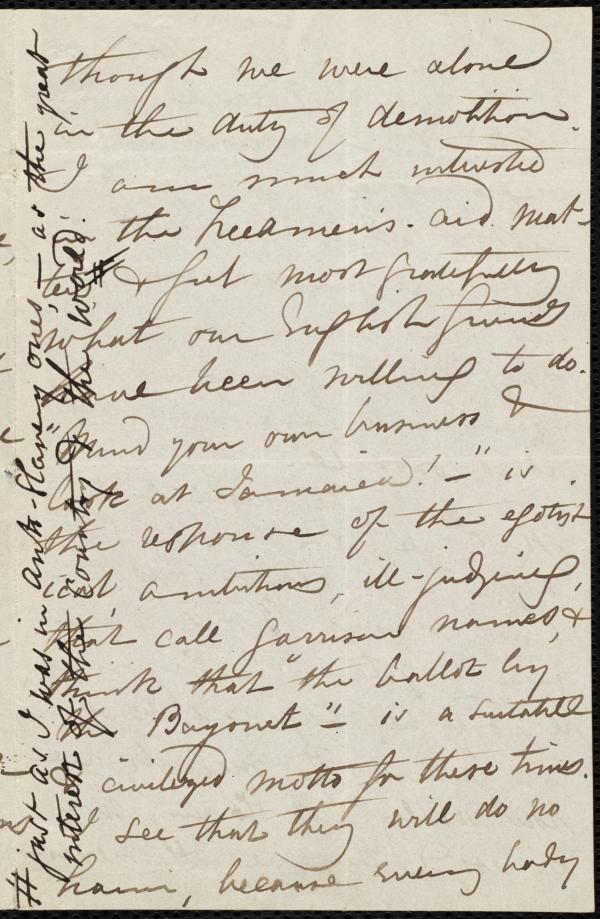 though we were alone
in the duty of demolition.
I am much interested
in the Freedmen's-aid mat-
ter, & feel most gratefully
what our English friends
have been willing to do.
"Mind your own business &
look at Jamaica!—" is
the response of the egotist-
ical ambitious, ill-judging,
that call Garrison names, &
think that "the ballot by
the Bayonet"— is a suitable
civilized motto for these times.
I see that they will do no
harm, because every body
# just as I was in Anti-Slavery ones,— as the great
interest of the country & the world! #